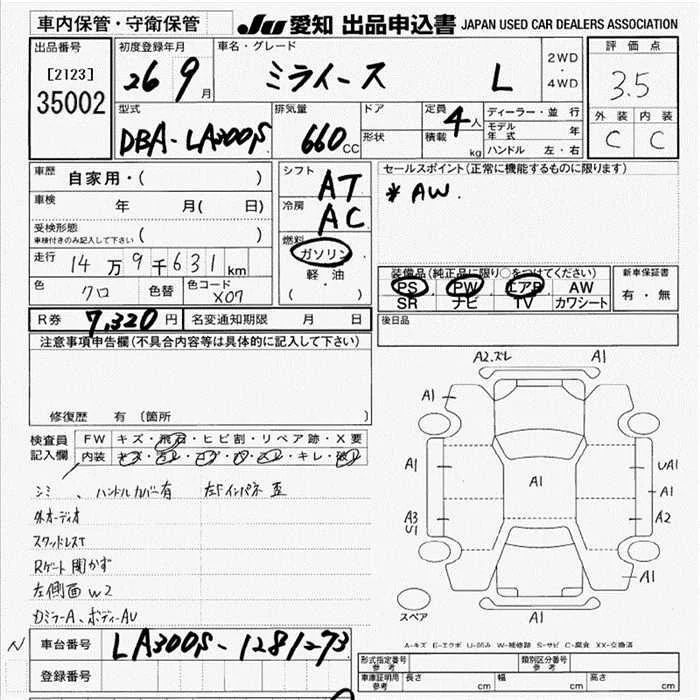 車内保管・守衛保管
JU 愛知 出品申込書 JAPAN USED CAR DEALERS ASSOCIATION
出品番号 [2123] 35002
初度登録年月 26 9月
車名・グレード ミライース L
2WD・4WD
評価点 3.5
外装 C 内装 C
型式 DBA-LA300S
排気量 660CC
ドア 形状
定員 4人
積載 kg
ディーラー・並行
モデル年式 年
ハンドル 左・右
車歴 自家用・( )
車検 年 月( 日)
受検形態 車検付きのみ記入して下さい ( )
走行 14万9千631km
色 クロ 色替 色コード X07
シフト AT
冷房 AC
燃料 ガソリン
軽・油
( )
セールスポイント(正常に機能するものに限ります)
* AW.
装備品(純正品に限り○をつけてください)
PS PW エアB AW
SR ナビ TV カワシート
新車保証書
有・無
R券 7,320円 名変通知期限 月 日
後日品
注意事項申告欄(不具合内容等は具体的に記入して下さい)
修復歴 有 〔箇所 〕
検査員記入欄
FW キズ・飛石・ヒビ割・リペア跡・X要
内装 キズ・ キレ・破レ
シミ、ハンドルカバー有 左Fインパネ歪
外オーディオ
スタッドレスT
Rゲート開かず
左側面W2
ドミラーA、ボディーAU
A2.ズレ A1
A1
A1 A1 UA1
A1
A3 U1 A2
A1
A1
スペア
A-キズ E-エクボ U-凹み W-補修跡 S-サビ C-腐食 XX-交換済
N 車台番号 LA300S-1281273
登録番号
形式指定番号 参考 類別区分番号 参考
車庫証明用 参考 長さ cm 幅 cm 高さ cm